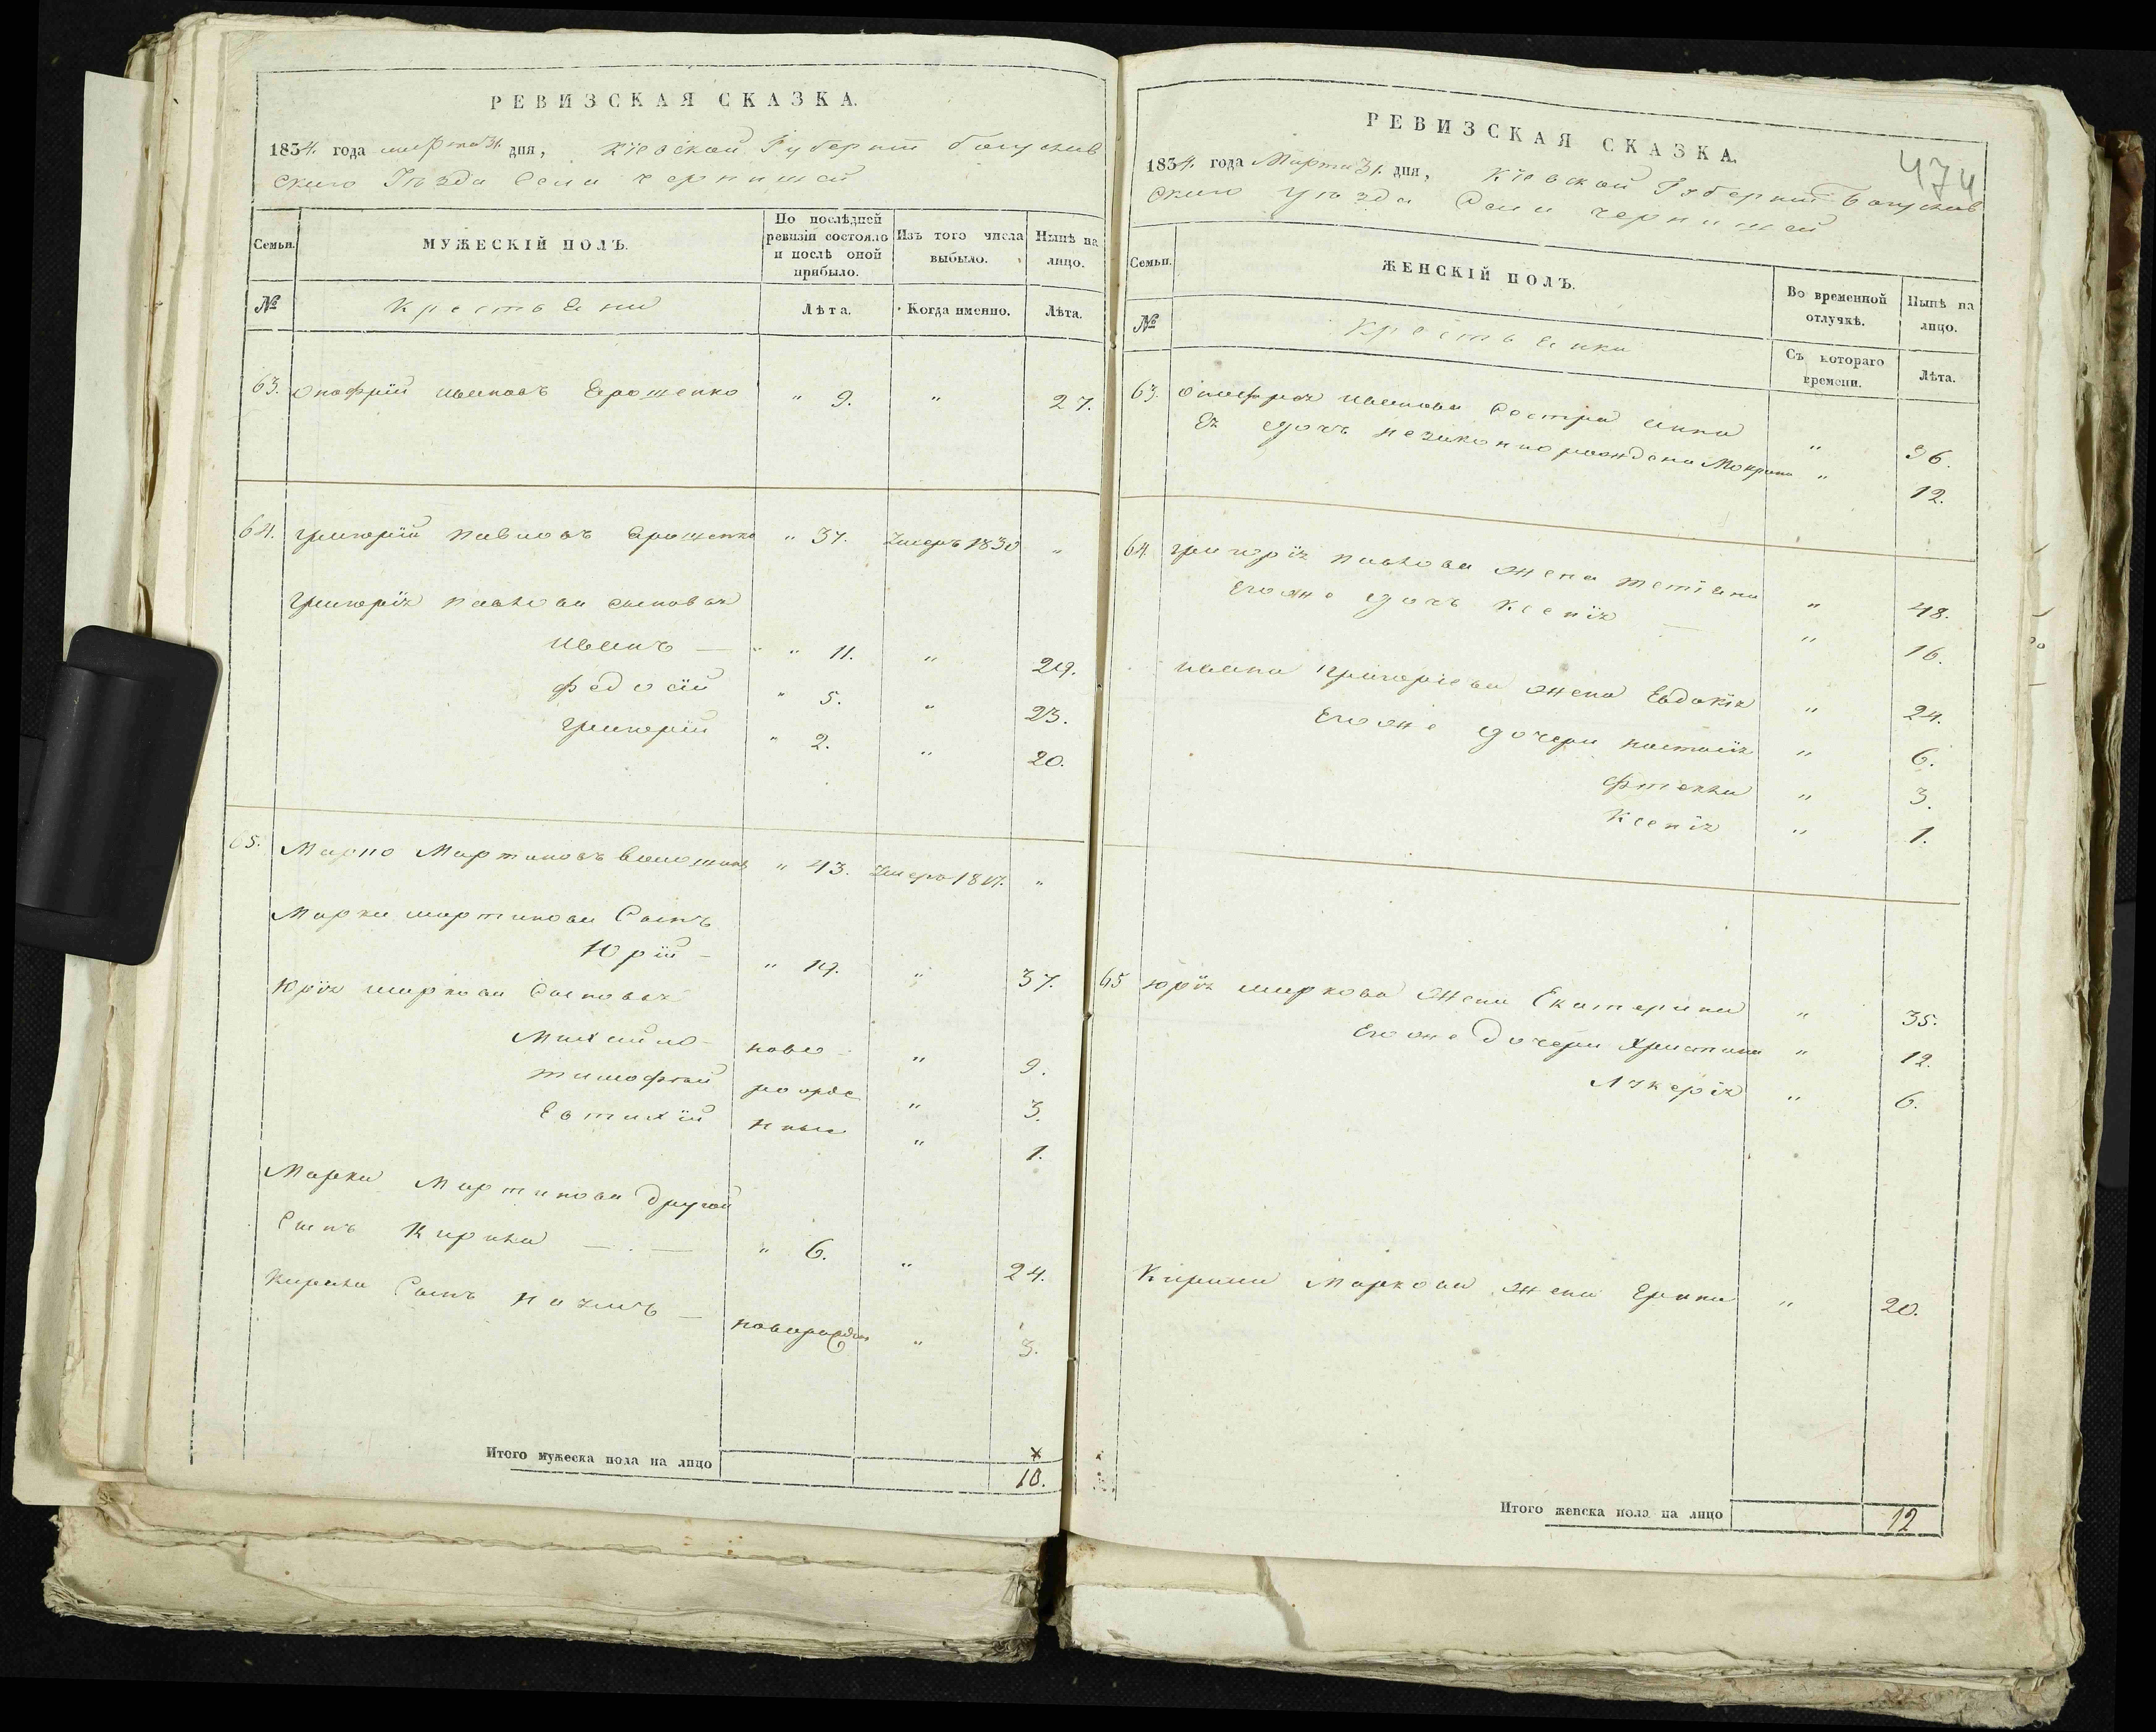 РЕВИЗСКАЯ СКАЗКА.
1834. года марта 31. дня, Кіевской Губерніи богуслав
скаго Уѣзда Села чернишей
Семьи. МУЖЕСКІЙ ПОЛЪ. По послѣдней ревизіи состояло и послѣ оной прибыло. Изъ того числа выбыло. Нынѣ на лицо.
№ Крестьяни Лѣта. Когда именно. Лѣта.
63. Онофрій ивановъ Ерошенко " 9. " 27.
64. григорій павловъ Ерошенко " 37. Умеръ 1830 "
григорія павлова сыновья
иванъ — " " 11. " 29.
федосій " 5. " 23.
григорій " 2. " 20.
65. Марко Мартиновъ " 43. Умеръ 1817. "
Марка мартинова Сынъ
Юрій - " 19. " 37.
Юрія маркова Сыновья
Михайло - ново " 9.
тимофѣй рожде " 3.
Евтихій нные " 1.
Марка Мартинова другой
Сынъ Кирила — . — " 6. " 24.
Кирила Сынъ Наумъ — новорожден " 3.
Итого мужеска пола на лицо 10.
РЕВИЗСКАЯ СКАЗКА.
474
1834. года Марта 31. дня, Кіевской Губерніи Богуслав
скаго уѣзда Села чернишей
Семьи. ЖЕНСКІЙ ПОЛЪ. Во временной отлучкѣ. Нынѣ на лицо.
№ Крестьянки Съ котораго времени. Лѣта.
63. Онофрія иванова Сестра анна " 36.
Ея дочь незаконно рождена Мокрина " 12.
64. григорія павлова жена тетіана " 48.
Егоже дочь Ксенія — " 16.
ивана григоріева жена Евдокія " 24.
Егоже дочери настасія " 6.
фтекла " 3.
Ксенія " 1.
65 юрія маркова Жена Екатерина " 35.
Егоже Дочери Христина " 12.
Лукерія " 6.
Кирила Маркова жена Ирина " 20.
Итого женска пола на лицо 12